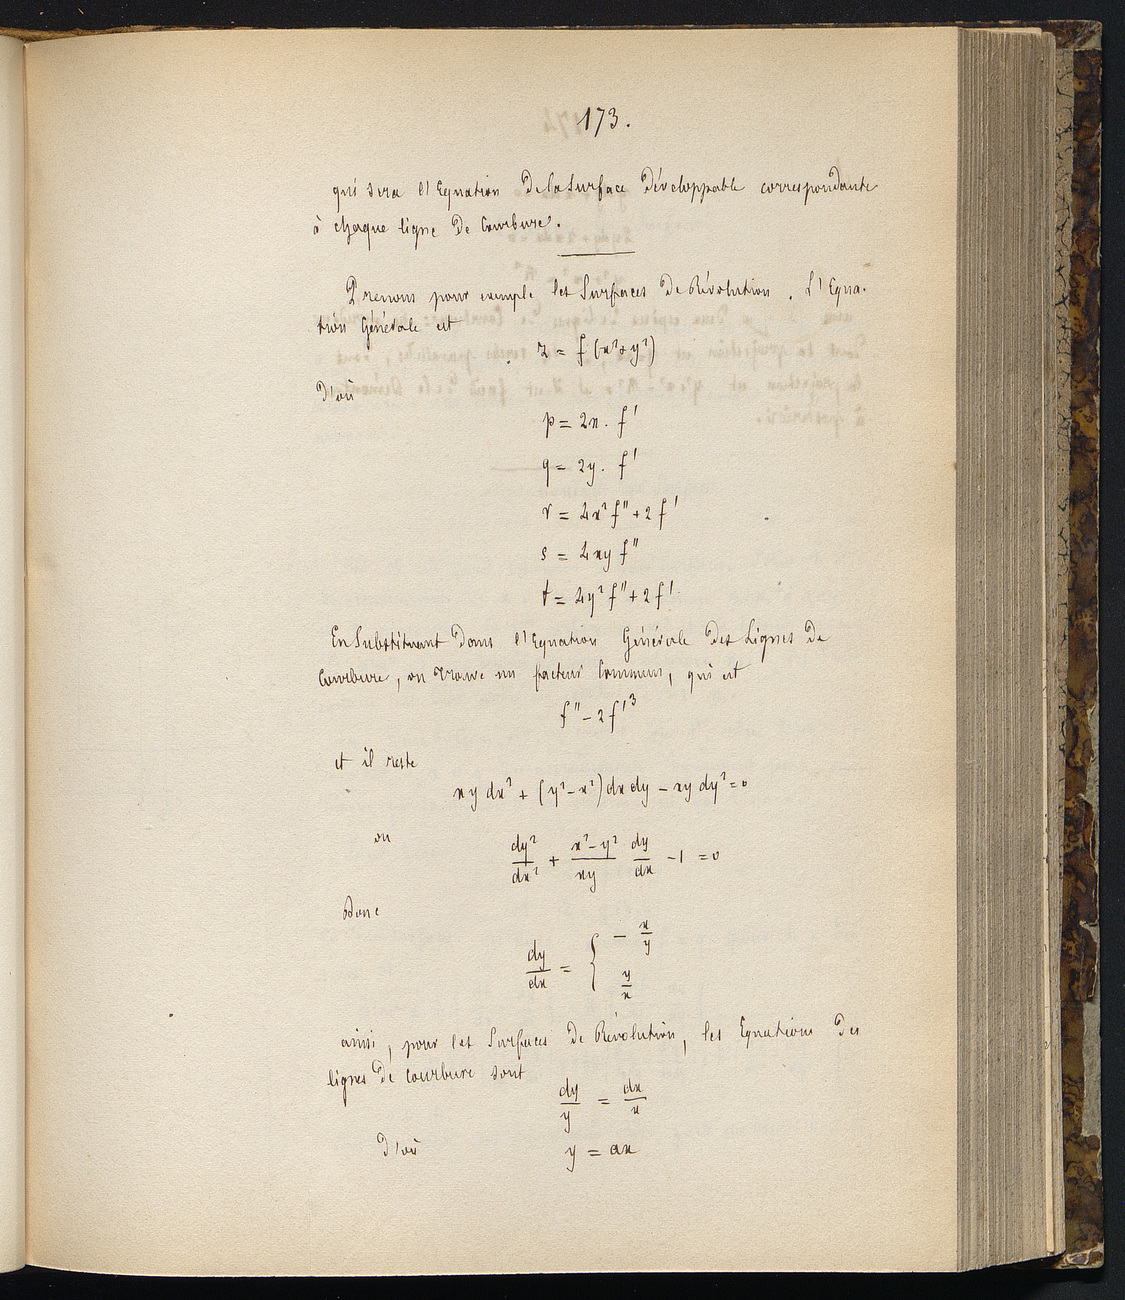 173.
qui sera l'Equation de la Surface développable correspondante
à chaque ligne de Courbure.
Prenons pour exemple les Surfaces de Révolution. L'Equa-
tion Générale est
z = f(x²+y²)
d'où
p = 2x. f'
q = 2y. f'
r = 4x² f'' + 2f'
s = 4xy f''
t = 4y² f'' + 2f'
En Substituant dans l'Equation Générale des Lignes de
Courbure, on trouve un facteur Commun, qui est
f'' - 2f'³
et il reste
xy dx² + (y²-x²) dx dy - xy dy² = 0
ou dy²/dx² + (x²-y²)/xy dy/dx - 1 = 0
Donc
dy/dx = { - x/y
y/x
ainsi, pour les Surfaces de Révolution, les Equations des
lignes de courbure sont
dy/y = dx/x
d'où y = ax